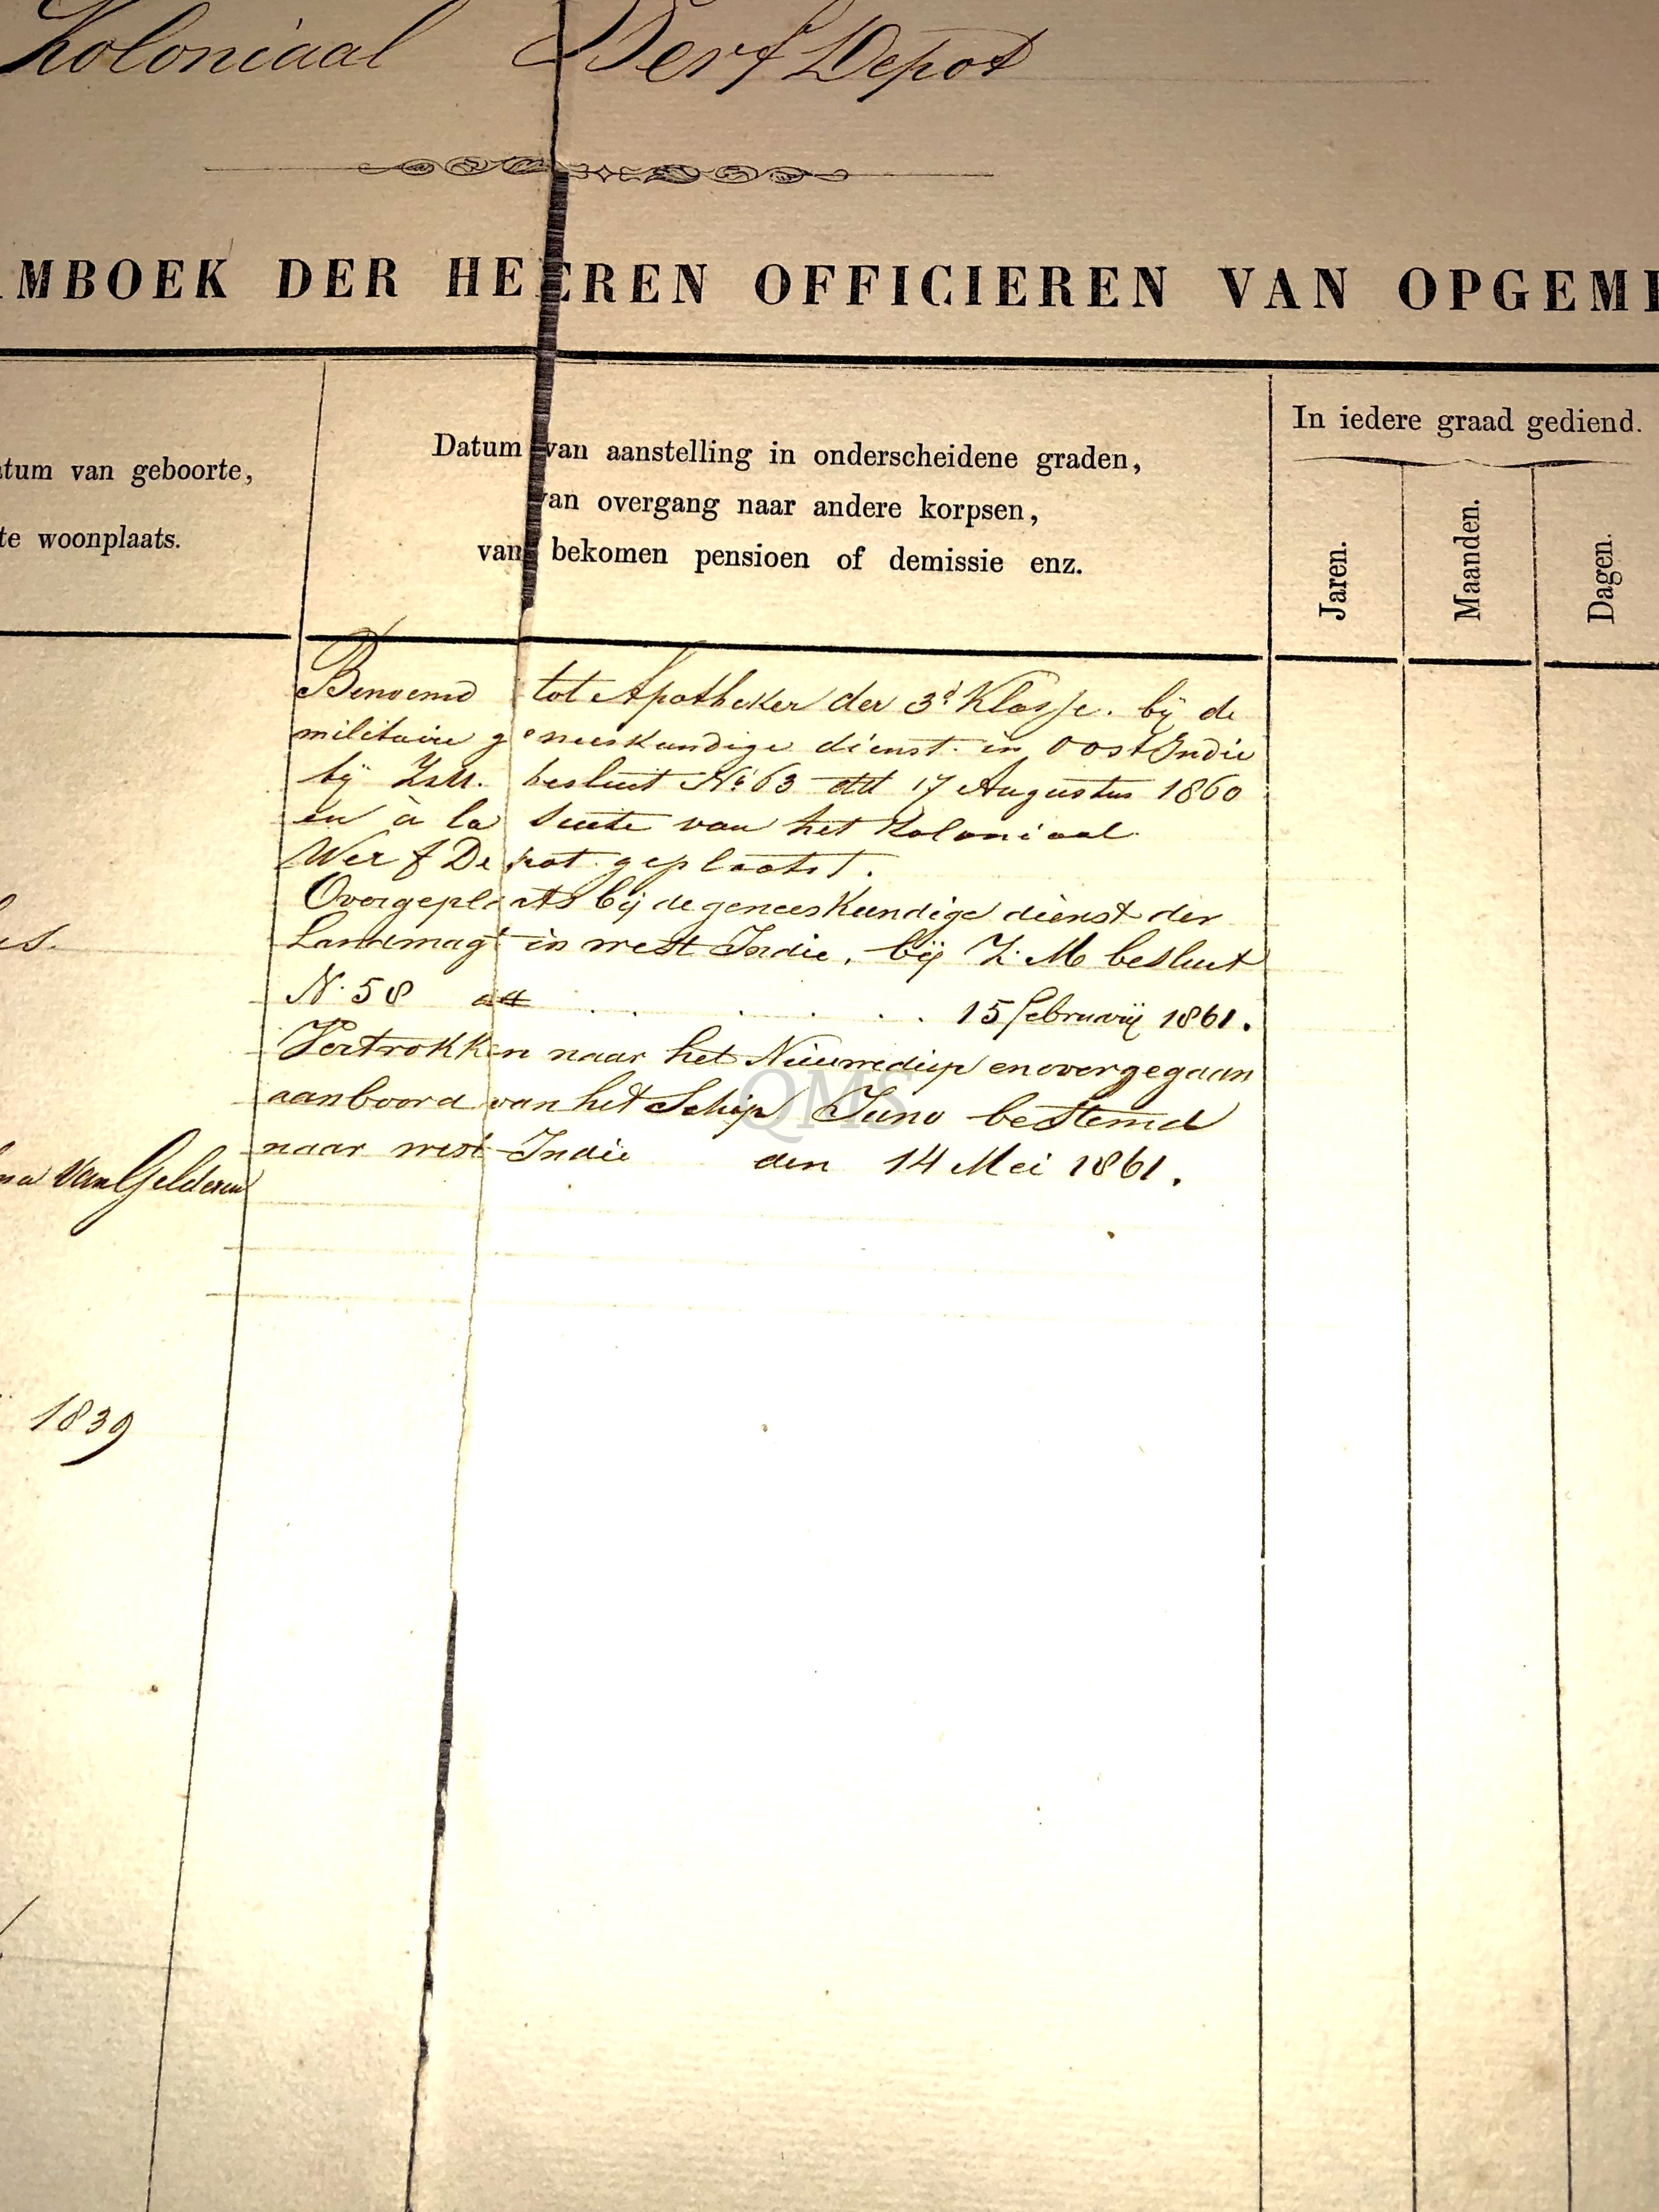 Koloniaal Werf Depot
MBOEK DER HEEREN OFFICIEREN VAN OPGEM
tum van geboorte,
te woonplaats.
Datum van aanstelling in onderscheidene graden,
van overgang naar andere korpsen,
van bekomen pensioen of demissie enz.
In iedere graad gediend.
Jaren.
Maanden.
Dagen.
Benoemd tot Apotheker der 3e Klasse. bij de
militaire geneeskundige dienst in Oost Indie
bij ZM. besluit No. 63 dd 17 Augustus 1860
en à la suite van het Koloniaal
Werf Depot geplaatst.
Overgeplaatst bij de geneeskundige dienst der
Landmagt in west Indie, bij Z. M besluit
N. 58 dd . . . . . 15 februarij 1861.
Vertrokken naar het Nieuwediep en overgegaan
aanboord van het Schip Juno bestemd
naar west Indie den 14 Mei 1861.
es.
na Van Gelderen
1839
QMS